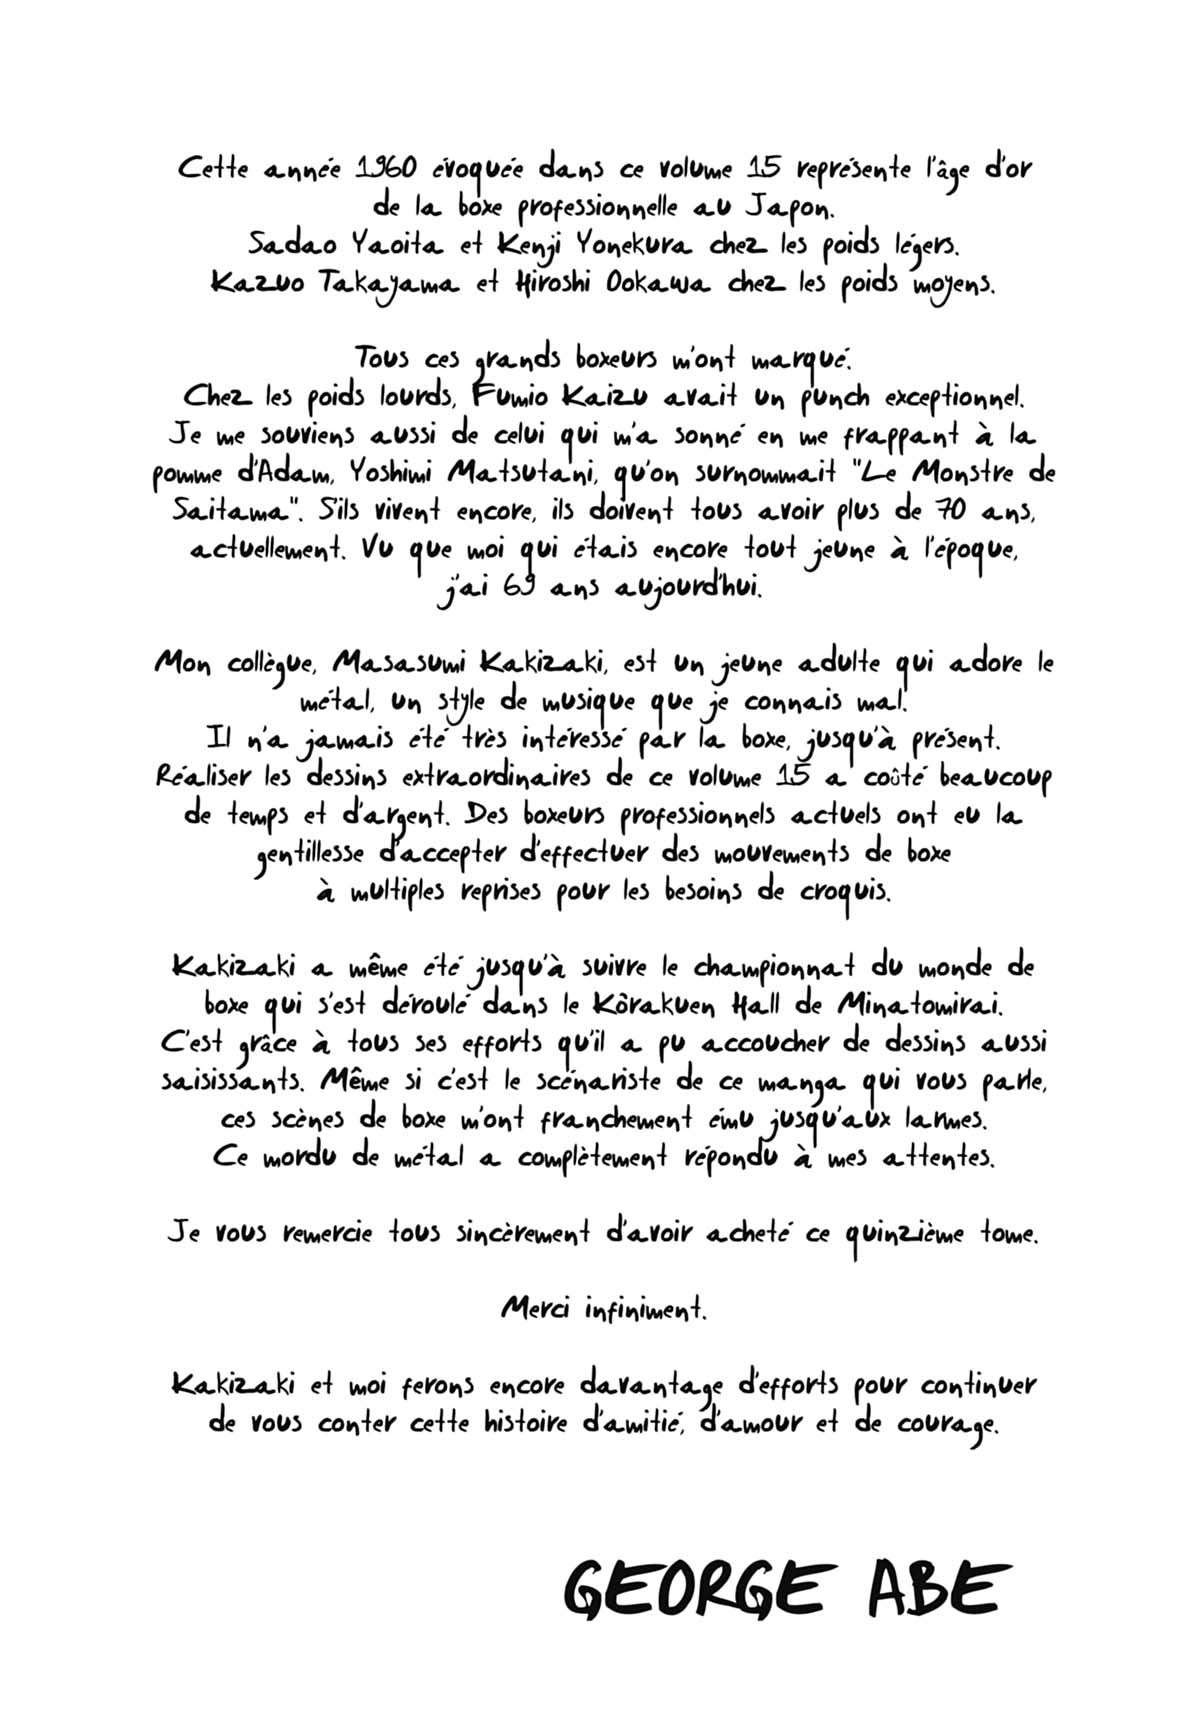 Cette année 1960 évoquée dans ce volume 15 représente l'âge d'or
de la boxe professionnelle au Japon.
Sadao Yaoita et Kenji Yonekura chez les poids légers.
Kazuo Takayama et Hiroshi Ookawa chez les poids moyens.
Tous ces grands boxeurs m'ont marqué.
Chez les poids lourds, Fumio Kaizu avait un punch exceptionnel.
Je me souviens aussi de celui qui m'a sonné en me frappant à la
pomme d'Adam, Yoshimi Matsutani, qu'on surnommait "Le Monstre de
Saitama". S'ils vivent encore, ils doivent tous avoir plus de 70 ans,
actuellement. Vu que moi qui étais encore tout jeune à l'époque,
j'ai 69 ans aujourd'hui.
Mon collègue, Masasumi Kakizaki, est un jeune adulte qui adore le
métal, un style de musique que je connais mal.
Il n'a jamais été très intéressé par la boxe, jusqu'à présent.
Réaliser les dessins extraordinaires de ce volume 15 a coûté beaucoup
de temps et d'argent. Des boxeurs professionnels actuels ont eu la
gentillesse d'accepter d'effectuer des mouvements de boxe
à multiples reprises pour les besoins de croquis.
Kakizaki a même été jusqu'à suivre le championnat du monde de
boxe qui s'est déroulé dans le Kôrakuen Hall de Minatomirai.
C'est grâce à tous ses efforts qu'il a pu accoucher de dessins aussi
saisissants. Même si c'est le scénariste de ce manga qui vous parle,
ces scènes de boxe m'ont franchement ému jusqu'aux larmes.
Ce mordu de métal a complètement répondu à mes attentes.
Je vous remercie tous sincèrement d'avoir acheté ce quinzième tome.
Merci infiniment.
Kakizaki et moi ferons encore davantage d'efforts pour continuer
de vous conter cette histoire d'amitié, d'amour et de courage.
GEORGE ABE